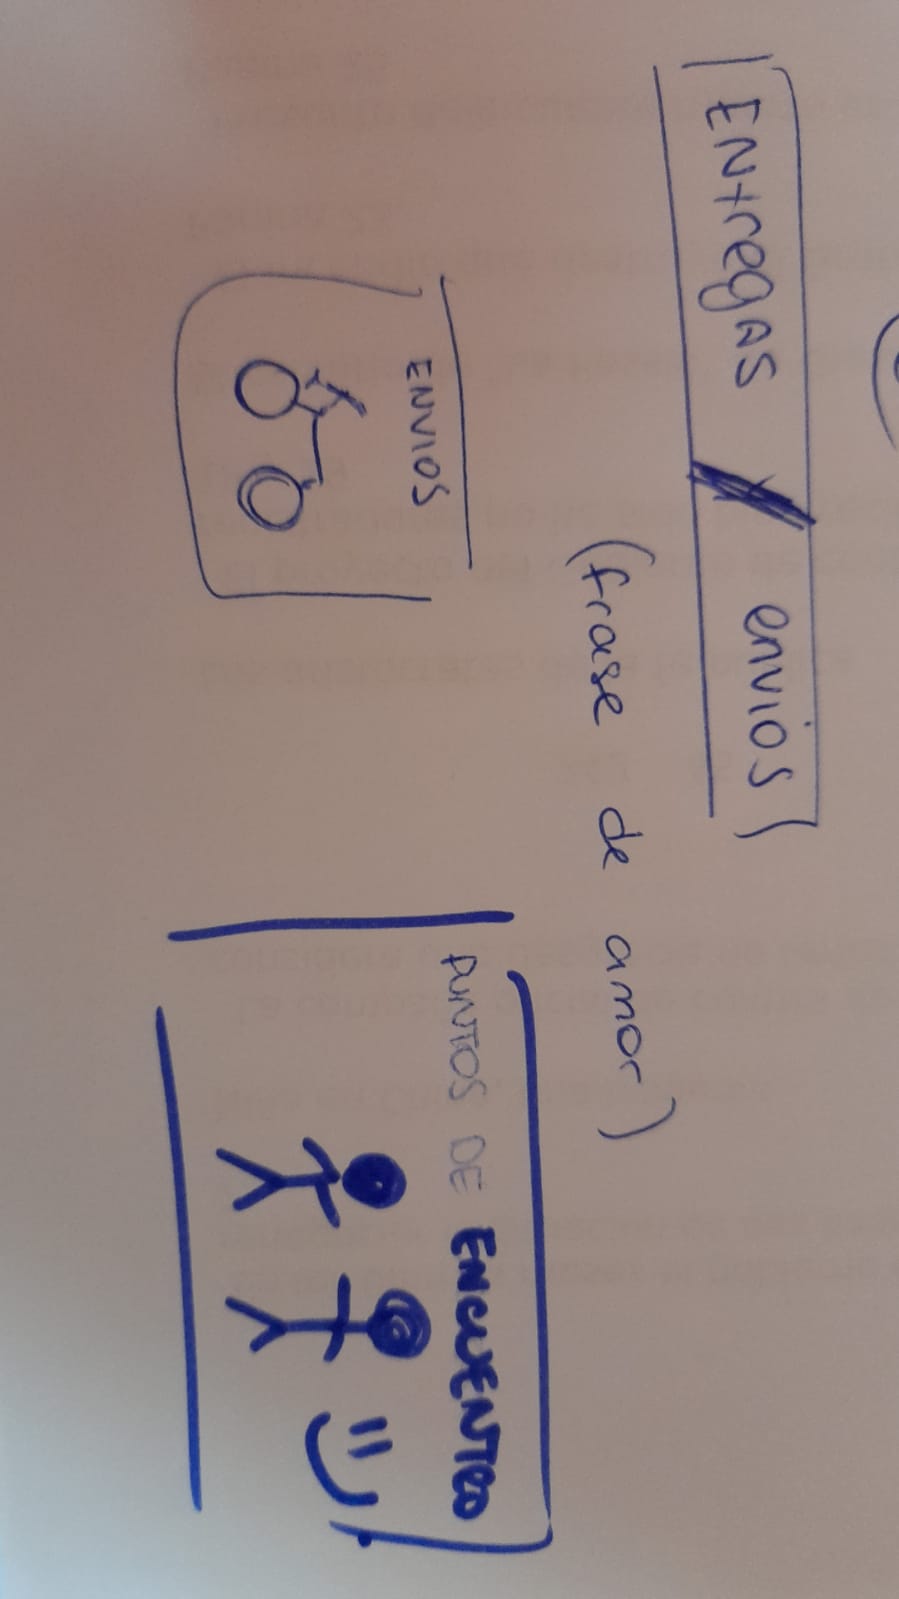 ENtregAS / envios
(frase de amor)
ENVIOS
PUNTOS DE ENCUENTRO